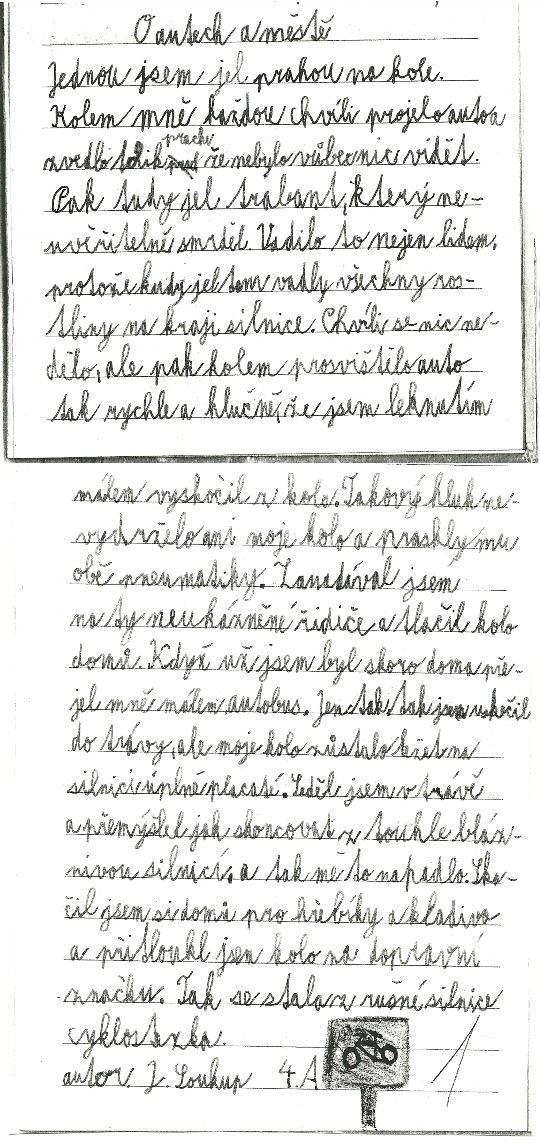 O autech a městě
Jednou jsem jel prahou na kole.
Kolem mně každou chvíli projelo auto a
zvedlo tolik prachu že nebylo vůbec nic vidět.
Pak tudy jel trabant, který ne-
uvěřitelně smrděl. Vadilo to nejen lidem,
protože kudy jel tam vadly všechny ros-
tliny na kraji silnice. Chvíli se nic ne-
dělo, ale pak kolem prosvištělo auto
tak rychle a hlučně, že jsem leknutím
málem vyskočil z kola. Takový hluk ne-
vydrželo ani moje kolo a praskly mu
obě pneumatiky. Zanadával jsem
na ty neukázněné řidiče a tlačil kolo
domů. Když už jsem byl skoro doma pře-
jel mně málem autobus. Jen tak tak jsem uskočil
do trávy, ale moje kolo zůstalo ležet na
silnici úplně placaté. Seděl jsem v trávě
a přemýšlel jak skoncovat z touhle bláz-
nivou silnicí, a tak mě to napadlo. Sko-
čil jsem si domů pro hřebíky a kladivo
a přitloukl jsem kolo na dopravní
značku. Tak se stala z rušné silnice
cyklostezka.
autor J. Souhup 4. A
1